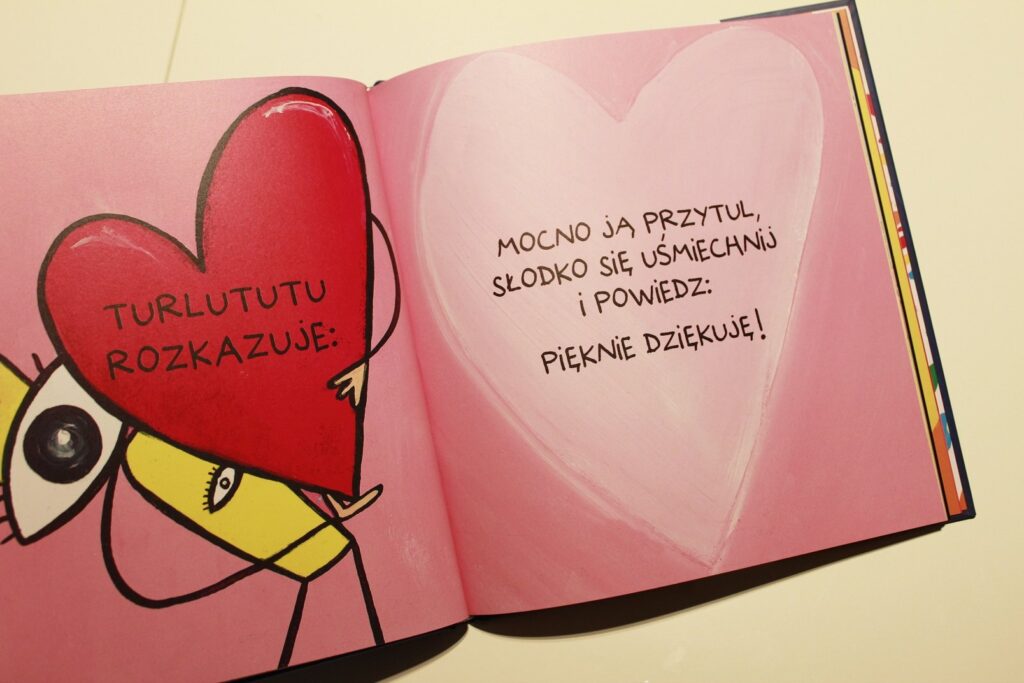 TURLUTUTU
ROZKAZUJE:
MOCNO JĄ PRZYTUL,
SŁODKO SIĘ UŚMIECHNIJ
I POWIEDZ:
PIĘKNIE DZIĘKUJĘ!